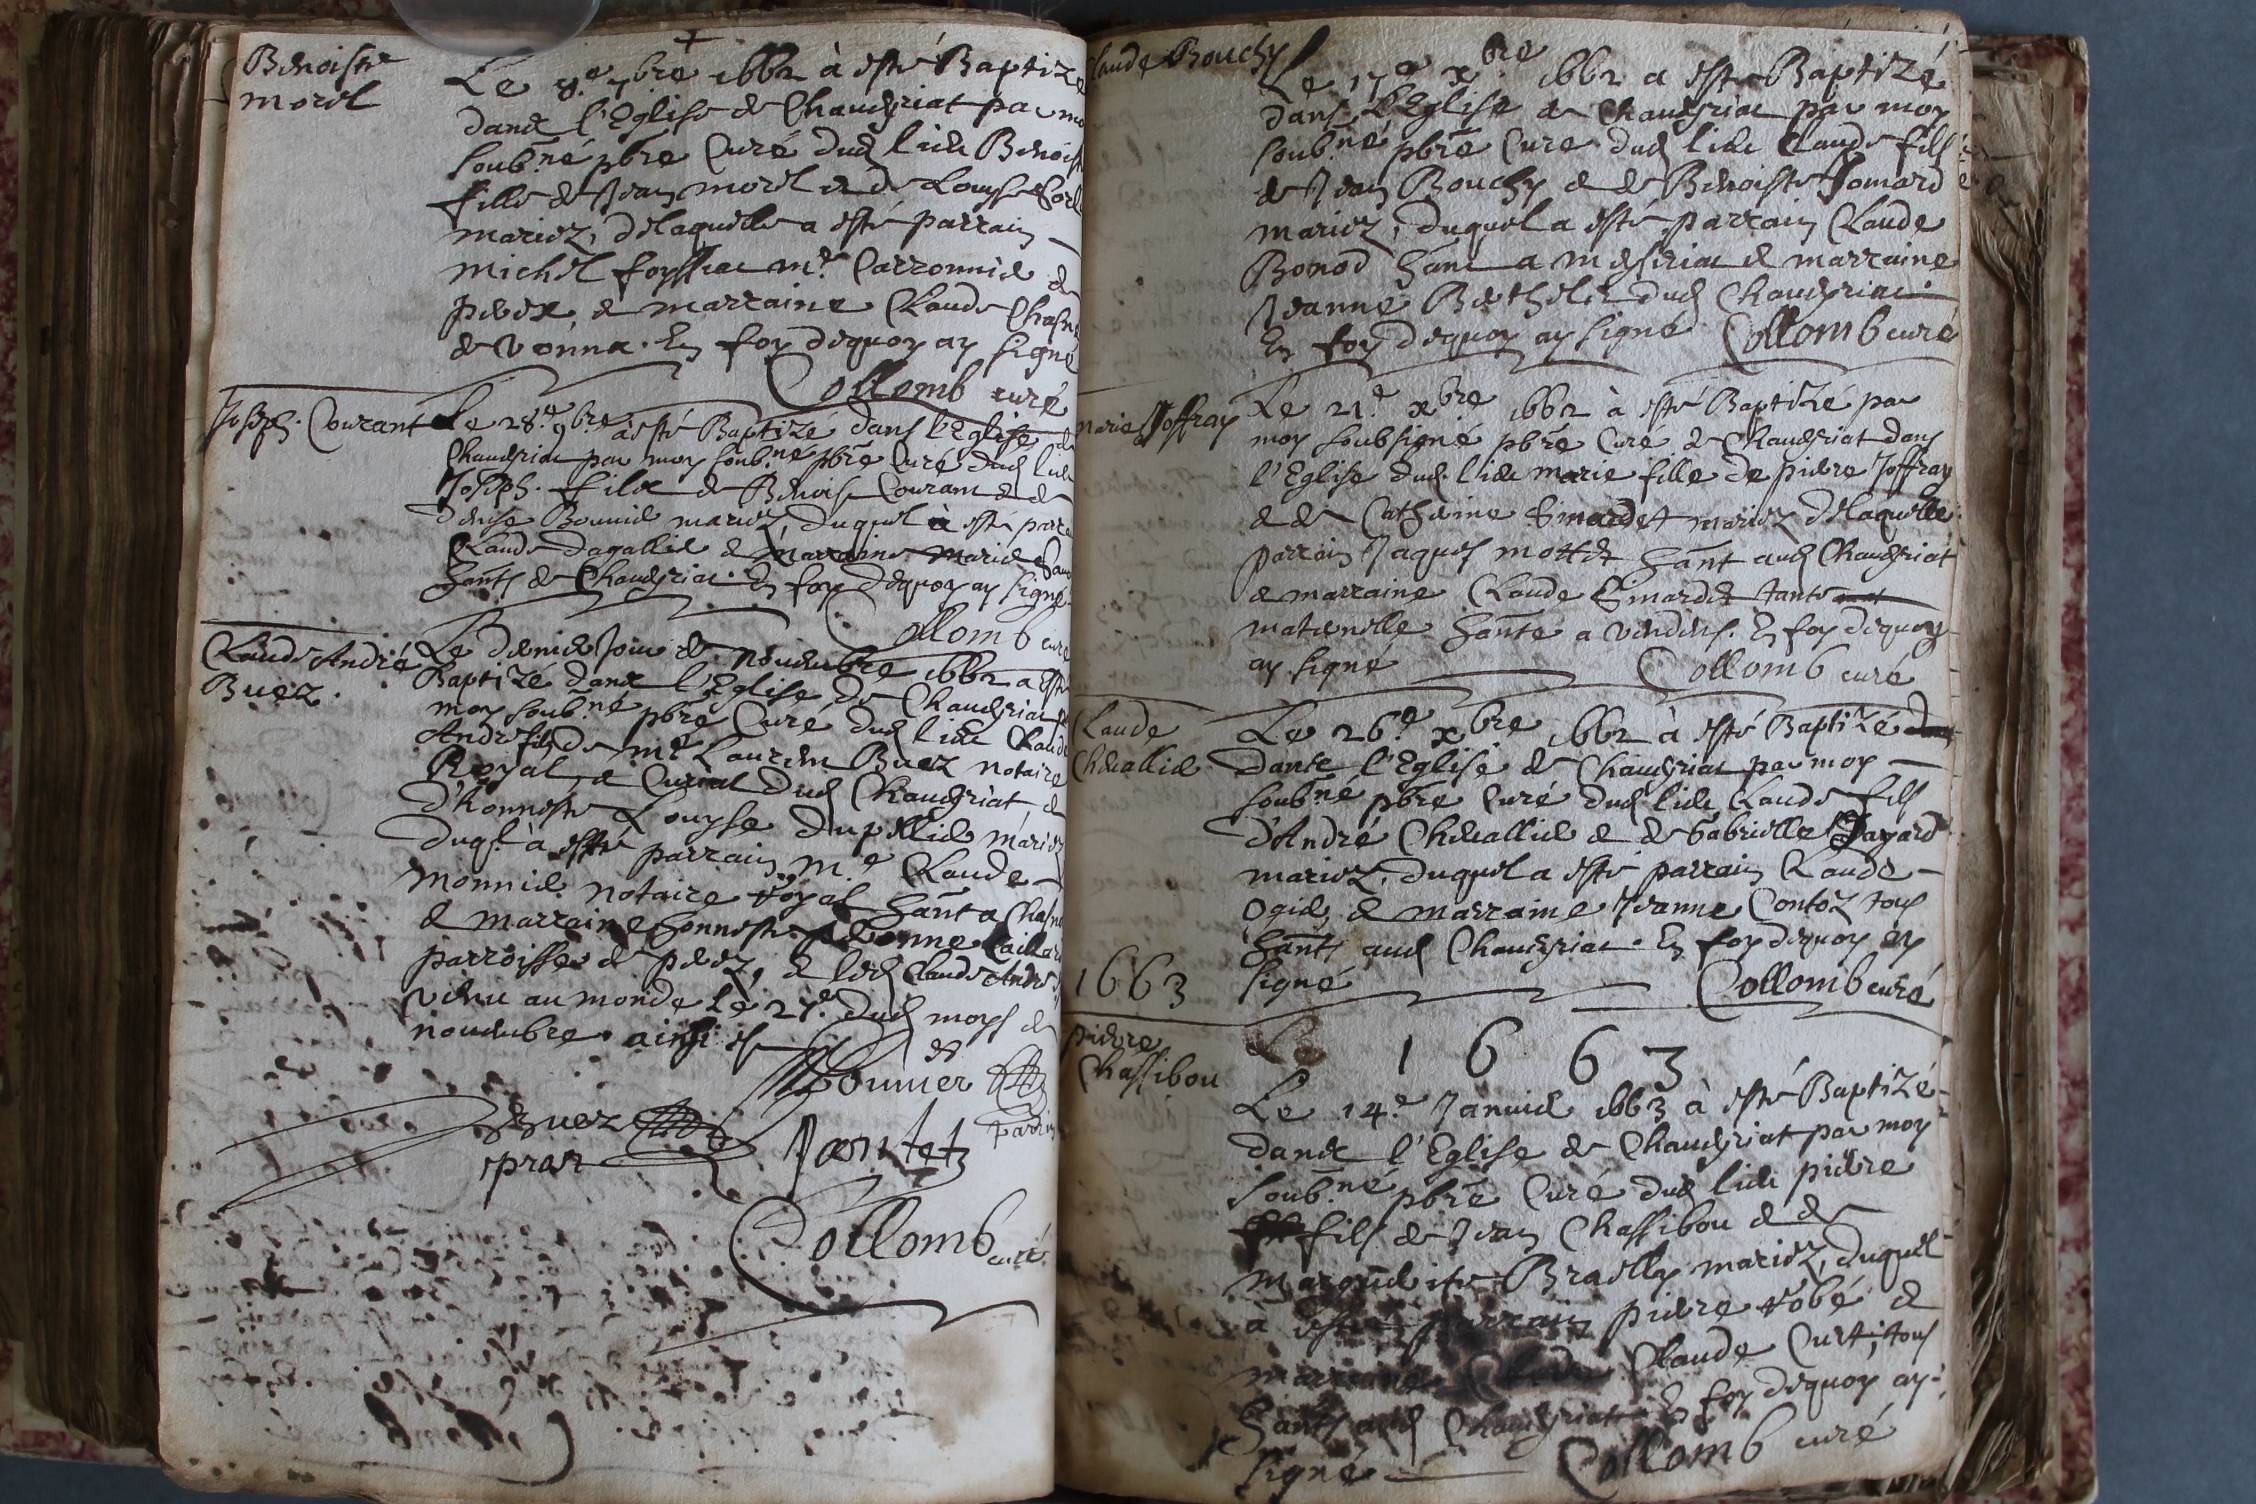 Benoiste
Morel
Le 8.e 7bre 1662 à esté Baptize
dans l'Eglise de Chaveyriat par mo
soub.né pbre Curé dud lieu Benoiste
fille de Jean Morel et de Louyse
mariez, delaquelle a esté parrain
Michel foyssiat m.e Carronnier de
perex, et marraine Claude
de vonna. En foy dequoy ay signé
Collomb curé
Joseph. Courant
Le 28.e 9bre à esté Baptizé dans l'Eglise de
Chaveyriat par moy soub.né pbre Curé dud lieu
Joseph. filz de Benoist Courant et de
denise Bouvier mariez, duquel a esté parr
Claude dagallier et marraine Marie
hants de Chaveyriat. En foy dequoy ay signé
Collomb curé
Claude André
Buez.
Le dernier Jour de Novembre 1662 a esté
Baptizé dans l'Eglise de Chaveyriat par
moy soub.né pbre Curé dud lieu Claude
André filz de m.e Laurent Buez notaire
Royal, et Curial dud Chaveyriat et
d'honneste Louyse dupellier mariez
duql à esté parrain m.e Claude
Monnier notaire royal hant a
et marraine honneste
parroisse de perez, et led Claude André
venu au monde le 27.e dud moys de
novembre. ainsi est
Monnier
Buez
prnt
Jantet
parrin
Collomb curé
Claude Bouchy
Le 17.e Xbre 1662 a esté Baptizé
dans l'Eglise de Chaveyriat par moy
soub.né pbre Cure dud lieu Claude filz
de Jean Bouchy et de Benoiste Jomard
mariez, duquel a esté parrain Claude
Bonod hant a mesériat et marraine
Jeanne Berthelet dud Chaveyriat.
En foy dequoy ay signé Collomb curé
Marie Joffray
Le 21.e xbre 1662 à esté Baptizé par
moy soubsigné pbre Curé de Chaveyriat dans
l'Eglise dud. lieu marie fille de pierre Joffray
et de Catherine mariez delaquelle
parrain Jaques Mottet hant aud Chaveyriat
et marraine Claude tante
maternelle hante a vendens. En foy dequoy
ay signé Collomb curé
Claude
Chevallier
Le 26.e xbre 1662 à esté Baptizé
dans l'Eglise de Chaveyriat par moy
soub.né pbre Curé dud lieu Claude filz
d'André Chevallier et de Gabrielle Jayard
mariez, duquel a esté parrain Claude
Ogier, et marraine Jeanne Contoz tous
hants aud Chaveyriat. En foy dequoy ay
signé Collomb curé
1663
1663
pierre
Chassibou
Le 14.e Janvier 1663 à esté Baptizé
dans l'Eglise de Chaveyriat par moy
soub.né pbre Curé dud lieu pierre
filz de Jean Chassibou et de
Marguerite Brailly mariez, duquel
à esté parrain pierre robé et
marraine Claude Curt, tous
hants aud Chaveyriat En foy dequoy ay
signé Collomb curé